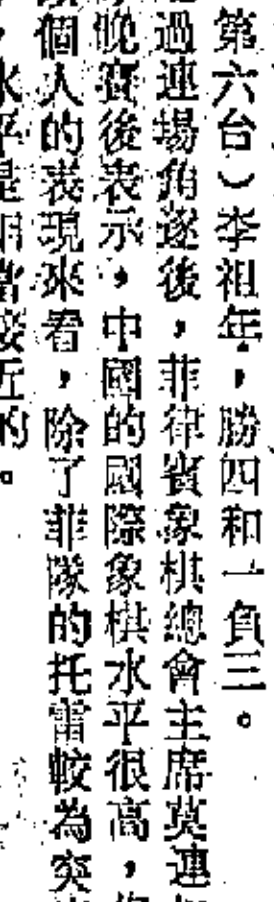 第六台）李祖年，勝四和一負三。
過連場角逐後，菲律賓象棋總會主席莫連
晚賽後表示，中國的國際象棋水平很高，
個人的表現來看，除了菲隊的托雷較為突
水平是相當接近的。